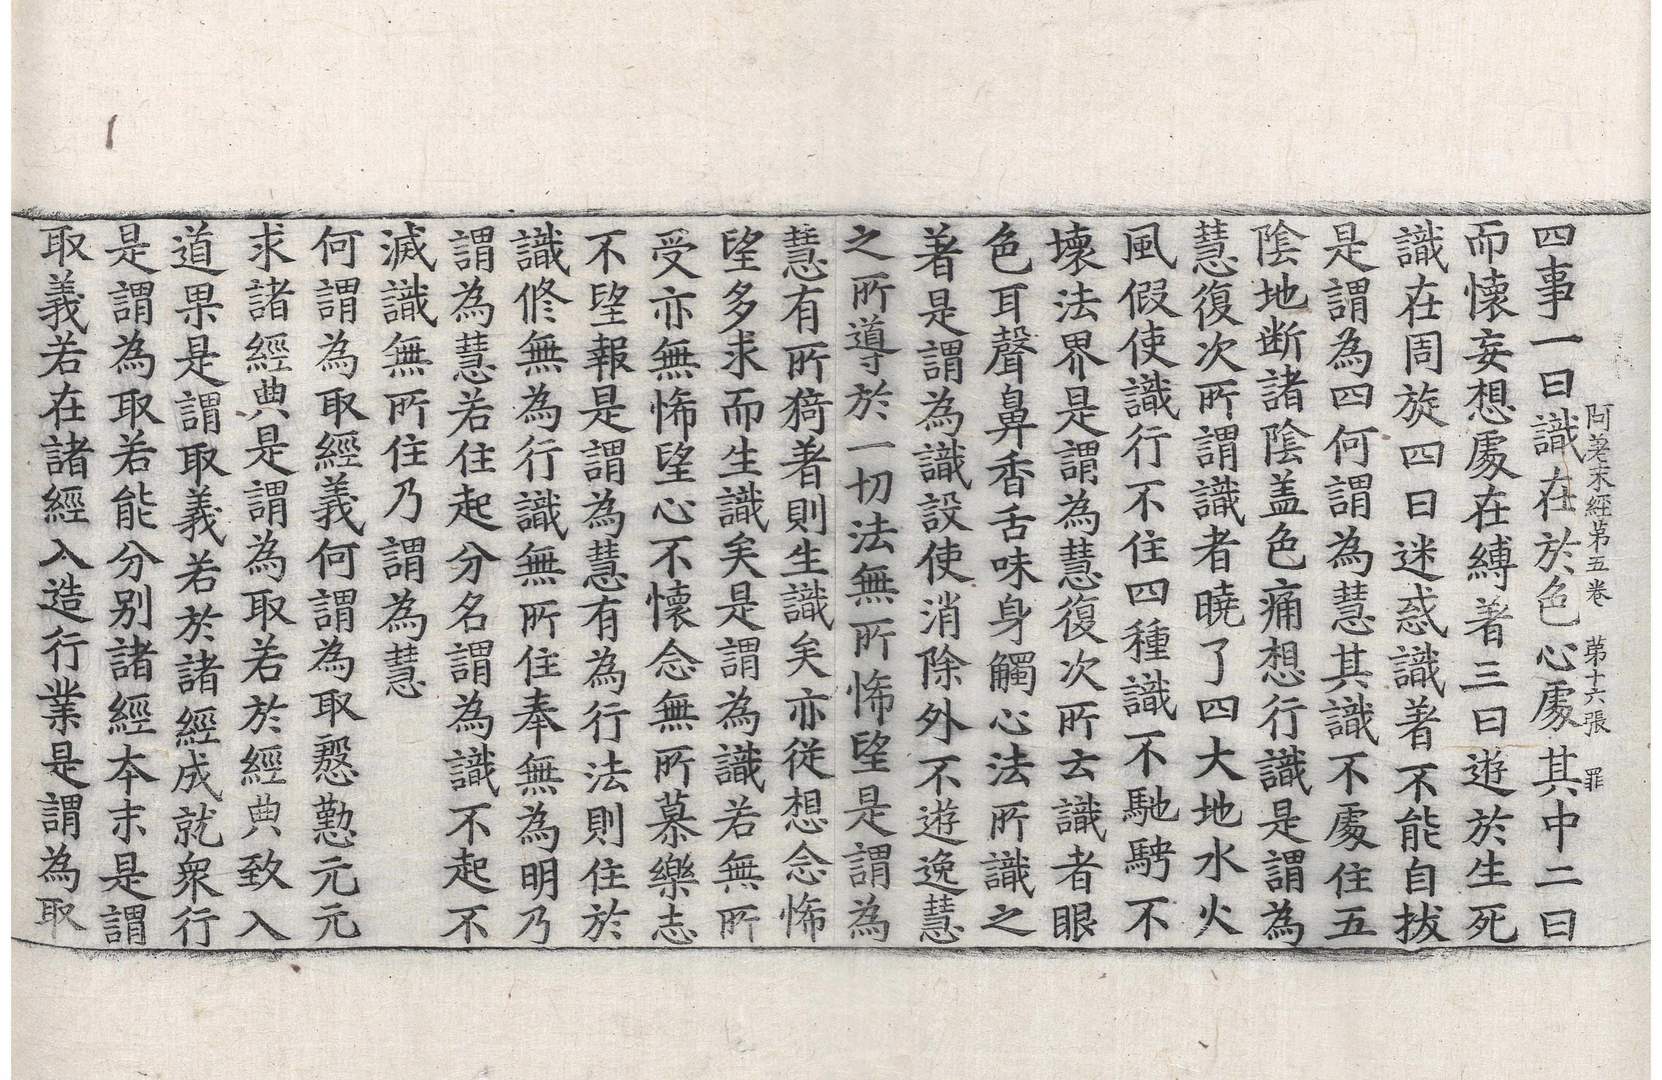 阿差末經第五卷　第十六張　罪
四事一曰識在於色心處其中二曰
而懷妄想處在縛著三曰遊於生死
識在周旋四曰迷惑識著不能自拔
是謂為四何謂為慧其識不處住五
陰地斷諸陰盖色痛想行識是謂為
慧復次所謂識者曉了四大地水火
風假使識行不住四種識不馳騁不
壞法界是謂為慧復次所云識者眼
色耳聲鼻香舌味身觸心法所識之
著是謂為識設使消除外不遊逸慧
之所導於一切法無所悕望是謂為
慧有所猗著則生識矣亦從想念悕
望多求而生識矣是謂為識若無所
受亦無悕望心不懷念無所慕樂志
不望報是謂為慧有為行法則住於
識修無為行識無所住奉無為明乃
謂為慧若住起分名謂為識不起不
滅識無所住乃謂為慧
何謂為取經義何謂為取慇懃元元
求諸經典是謂為取若於經典致入
道果是謂取義若於諸經成就衆行
是謂為取若能分別諸經本末是謂
取義若在諸經入造行業是謂為取